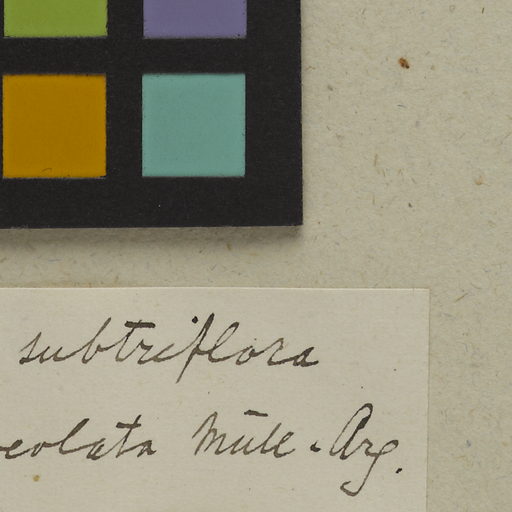 subtriflora
ceolata Müll-Arg.